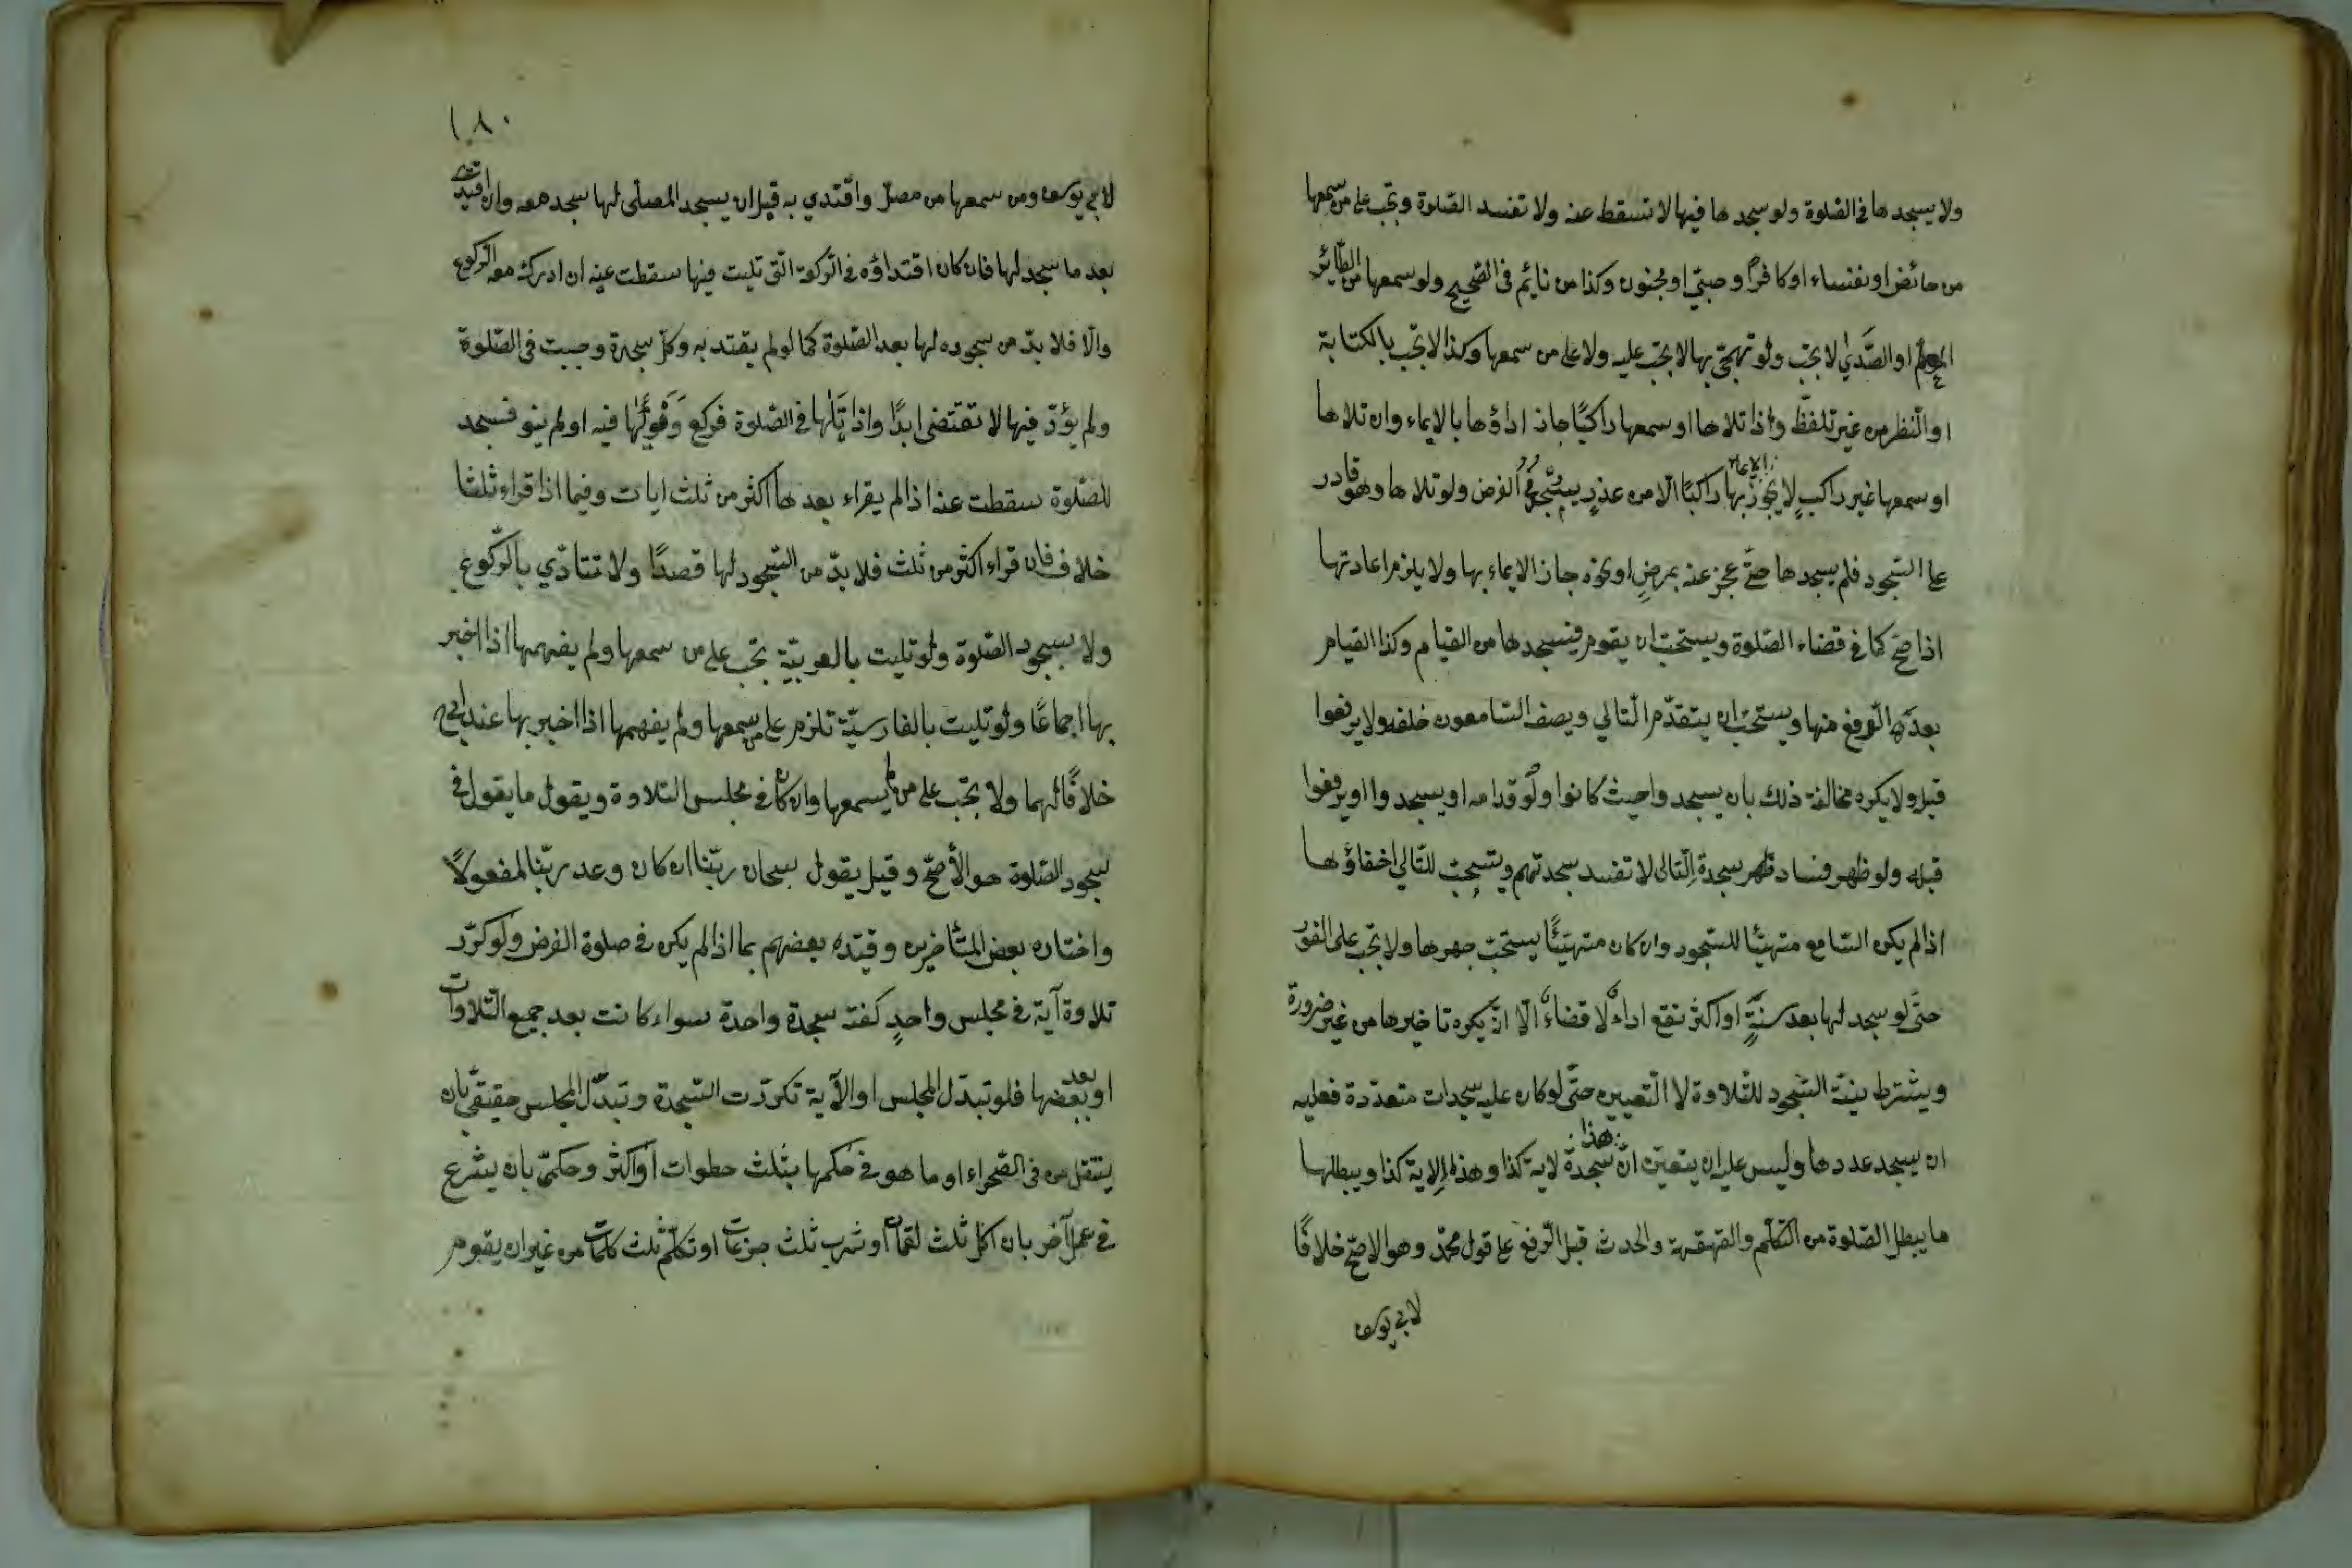 ولا يسجدها في الصّلوة ولو سجدها فيها لا تسقط عنه ولا تفسد الصّلوة وتجب على من سمعها
من حائض او نفساء او كافر او صبيّ او مجنون وكذا من نائم في الصّحيح ولو سمعها من الطّائر
المعلم او الصَّدي لا تجب ولو تهجّي بها لا تجب عليه ولا على من سمعها وكذا لا تجب بالكتابة
او النّظر من غير تلفّظ واذا تلاها او سمعها راكبًا جاز اداؤها بالايماء وان تلاها
او سمعها غير راكبٍ لا يجوز الايماء بها راكبًا الّا من عذرٍ الفرض ولو تلاها وهو قادر
على السّجود فلم يسجدها حتّى عجز عنه بمرضٍ او نحوه جاز الايماء بها ولا يلزم اعادتها
اذا صحّ كما في قضاء الصّلوة ويستحبّ ان يقوم فيسجدها من القيام وكذا القيام
بعد الرّفع منها ويستحبّ ان يتقدّم التّالي ويصف السّامعون خلفه ولا يرفعوا
قبله ولا يكره مخالفة ذلك بان يسجدوا حيث كانوا ولو قدامه او يسجدوا او يرفعوا
قبله ولو ظهر فساد سجدة التّالي لا تفسد سجدتهم ويستحبّ للتّالي اخفاؤها
اذا لم يكن السّامع متهيّئا للسّجود وان كان متهيّئًا يستحبّ جهرها ولا تجب على الفور
حتّى لو سجد لها بعد سنةٍ او اكثر تقع اداءً لا قضاءً الّا انّه يكره تاخيرها من غير ضرورة
ويشترط نيّة السّجود للتّلاوة لا التّعيين حتّى لو كان عليه سجدات متعدّدة فعليه
ان يسجد عددها وليس عليه ان يتعيّن انّ هذا سجدة لاية كذا وهذا لاية كذا ويبطلها
ما يبطل الصّلوة من التّكلّم والقهقهة والحدث قبل الرّفع على قول محمّد وهو الاصحّ خلافًا
لابي يوسف
١٨٠
لابي يوسف ومن سمعها من مصلّ واقتدي به قبل ان يسجد المصلّي لها سجد معه وان اقتدى
بعد ما سجد لها فان كان اقتداؤه في الرّكعة الّتي تليت فيها سقطت عنه ان ادركه معه الرّكوع
والّا فلا بدّ من سجوده لها بعد الصّلوة كما لو لم يقتد به وكلّ سجدة وجبت في الصّلوة
ولم يؤدّ فيها لا تقتضى ابدًا واذا تلٰها في الصّلوة فركع ونوٰها فيه او لم ينو فسجد
للصّلوة سقطت عنه اذا لم يقراء بعدها اكثر من ثلث ايات وفيما اذا قراء ثلثا
خلاف فان قراء اكثر من ثلث فلا بدّ من السّجود لها قصدًا ولا تتادّي بالرّكوع
ولا بسجود الصّلوة ولو تليت بالعربيّة تجب على من سمعها ولم يفهمها اذا اخبر
بها اجماعًا ولو تليت بالفارسيّة تلزم على من سمعها ولم يفهمها اذا اخبر بها عند ابي ح
خلافًا لهما ولا تجب على من لم يسمعها وان كان في مجلس التلاوة ويقول ما يقول في
سجود الصّلوة هو الأصحّ وقيل يقول سبحان ربّنا ان كان وعد ربّنا لمفعولاً
واختاره بعض المتأخرين وقيّده بعضهم بما اذا لم يكن في صلوة الفرض ولو كرّر
تلاوة آية في مجلس واحدٍ كفته سجدة واحدة سواء كانت بعد جميع التّلاوات
او بعد بعضها فلو تبدّل المجلس او الآية تكرّرت السّجدة وتبدّل المجلس حقيقيّ بان
ينتقل من في الصّحراء او ما هو في حكمها بثلث خطوات او اكثر وحكميّ بان يشرع
في عمل آخر بان اكل ثلث لقمات او شرب ثلث جرعات او تكلّم ثلث كلمات من غير ان يقوم